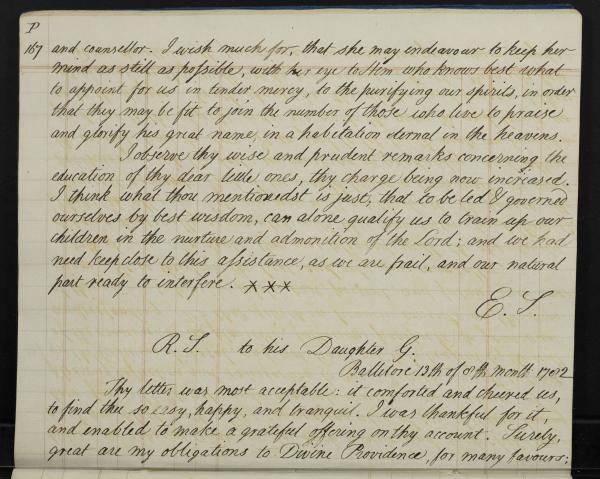 P
167 and counsellor. I wish much for, that she may endeavour to keep her
mind as still as possible, with her eye to Him who knows best what
to appoint for us in tender mercy, to the purifying our spirits, in order
that they may be fit to join the number of those who live to praise
and glorify his great name, in a habitation eternal in the heavens.
I observe thy wise and prudent remarks concerning the
education of thy dear little ones, thy charge being now increased.
I think what thou mentionedst is just, that to be led & governed
ourselves by best wisdom, can alone qualify us to train up our
children in the nurture and admonition of the Lord; and we had
need keep close to this assistance, as we are frail, and our natural
part ready to interfere. x x x
E. S.
R. S. to his Daughter G.
Ballitore 13th of 8th month 1782
Thy letter was most acceptable: it comforted and cheered us,
to find thee so easy, happy, and tranquil. I was thankful for it,
and enabled to make a grateful offering on thy account. Surely,
great are my obligations to Divine Providence, for many favours;